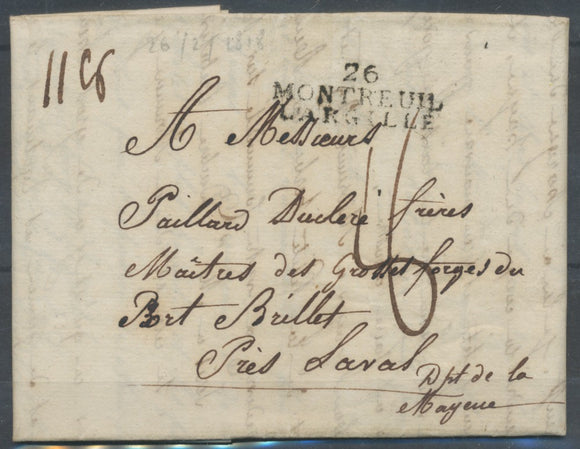 26/2/1818
26
MONTREUIL
L'ARGILLÉ
A Messieurs
Paillard Ducleré frères
Maîtres des Grosses forges du
Port Brillet
Près Laval
Dpt de la
Mayene